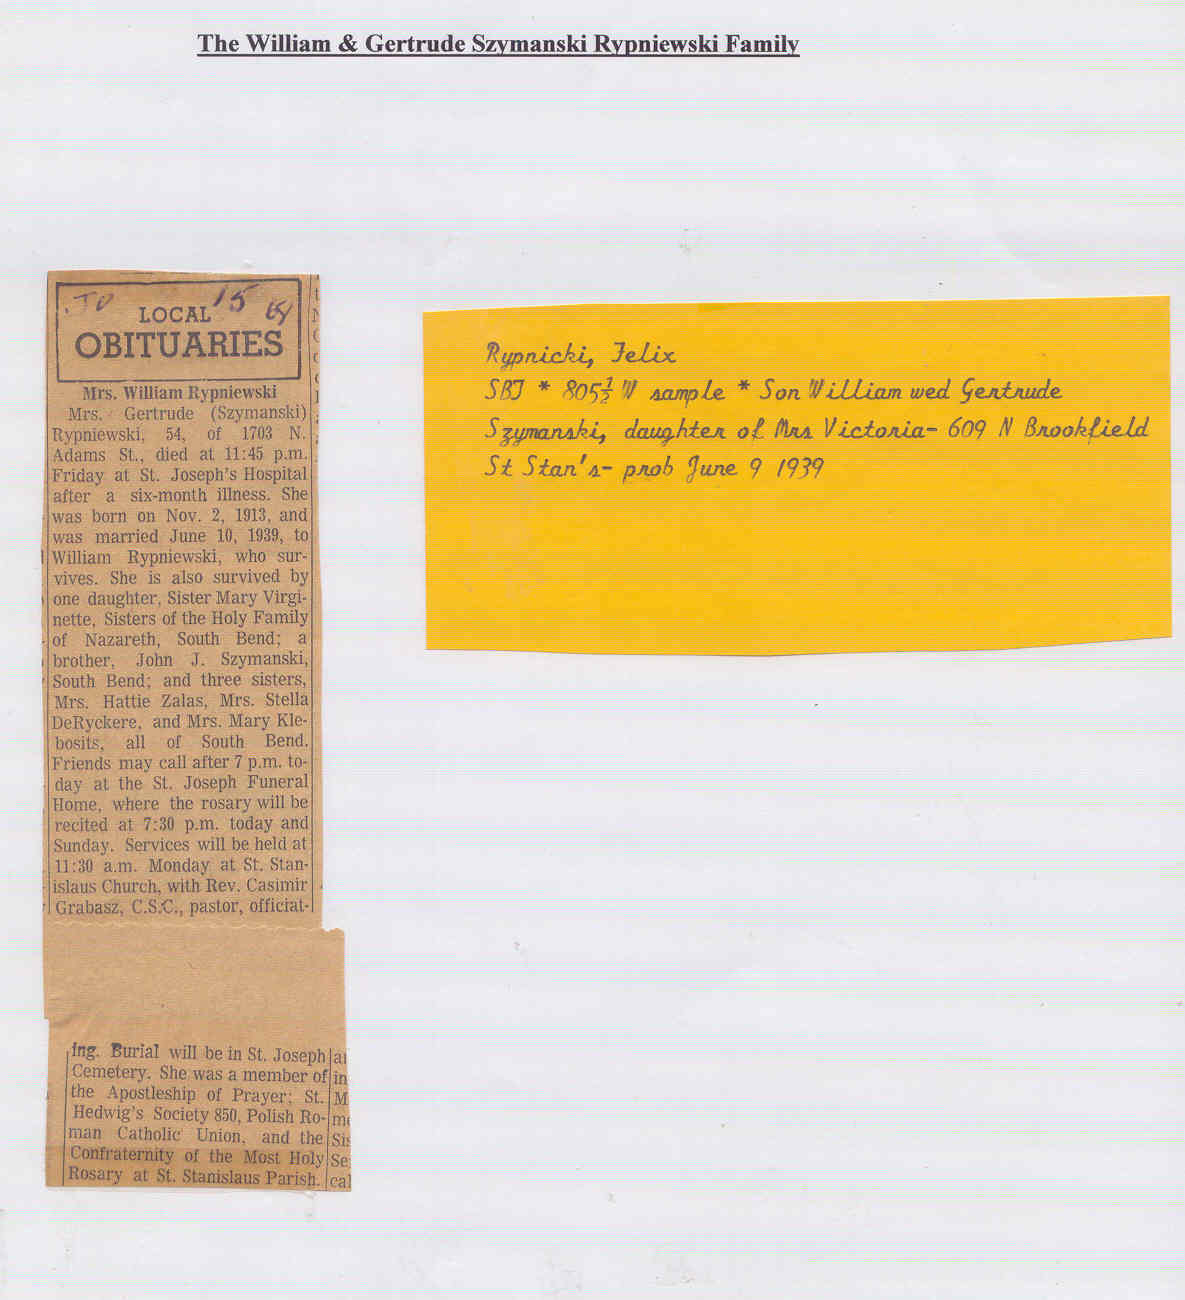 The William & Gertrude Szymanski Rypniewski Family
15
LOCAL
OBITUARIES
Mrs. William Rypniewski
Mrs. Gertrude (Szymanski)
Rypniewski, 54, of 1703 N.
Adams St., died at 11:45 p.m.
Friday at St. Joseph's Hospital
after a six-month illness. She
was born on Nov. 2, 1913, and
was married June 10, 1939, to
William Rypniewski, who sur-
vives. She is also survived by
one daughter, Sister Mary Virgi-
nette, Sisters of the Holy Family
of Nazareth, South Bend; a
brother, John J. Szymanski,
South Bend; and three sisters,
Mrs. Hattie Zalas, Mrs. Stella
DeRyckere, and Mrs. Mary Kle-
bosits, all of South Bend.
Friends may call after 7 p.m. to-
day at the St. Joseph Funeral
Home, where the rosary will be
recited at 7:30 p.m. today and
Sunday. Services will be held at
11:30 a.m. Monday at St. Stan-
islaus Church, with Rev. Casimir
Grabasz, C.S.C., pastor, officiat-
ing. Burial will be in St. Joseph
Cemetery. She was a member of
the Apostleship of Prayer; St.
Hedwig's Society 850, Polish Ro-
man Catholic Union, and the
Confraternity of the Most Holy
Rosary at St. Stanislaus Parish.
Rypnicki, Felix
SBT * 805½ W sample * Son William wed Gertrude
Szymanski, daughter of Mrs Victoria- 609 N Brookfield
St Stan's- prob June 9 1939